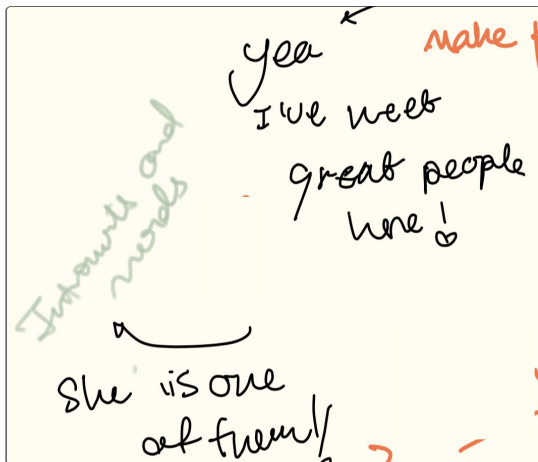 yea
make
I've meet
great people
here!
Introverts and
nerds
She is one
of them!!